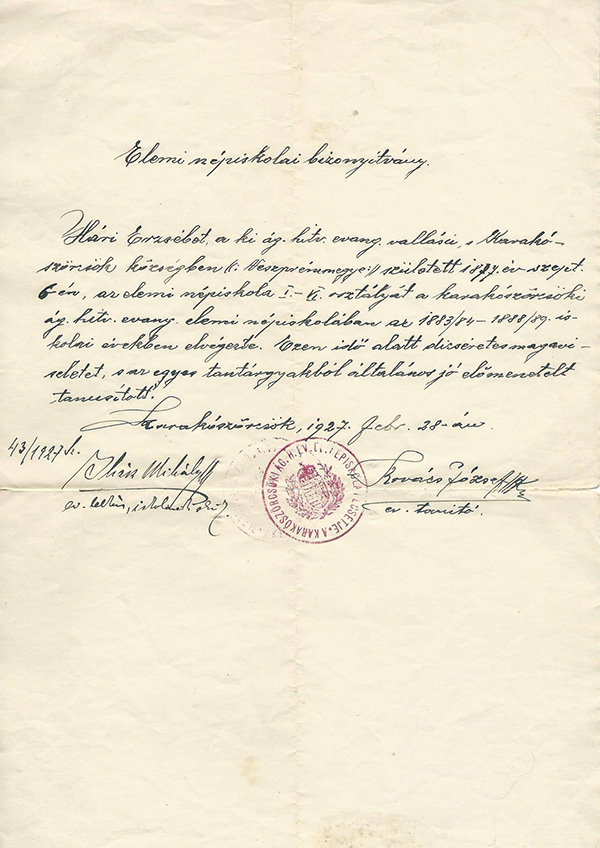 Elemi népiskolai bizonyítvány.
Hári Erzsébet, a ki ág. hitv. evang. vallású, s Karakó-
szörcsök községben (v. Veszprémmegye) született 1877. év szept.
6-én, az elemi népiskola I.-VI. osztályát a karakószörcsöki
ág. hitv. evang. elemi népiskolában az 1883/84-1888/89. is-
kolai években elvégezte. Ezen idő alatt dicséretes magavi-
seletet, s az egyes tantárgyakból általános jó előmenetelt
tanusított.
Karakószörcsök, 1927. febr. 28-án
43/1927 h.
Ihász Mihály Kovács József
ev. lelkész, ev. tanító.
A KARAKÓSZÖRCSÖKI ÁG. H. EV. EL. NÉPISKOLA